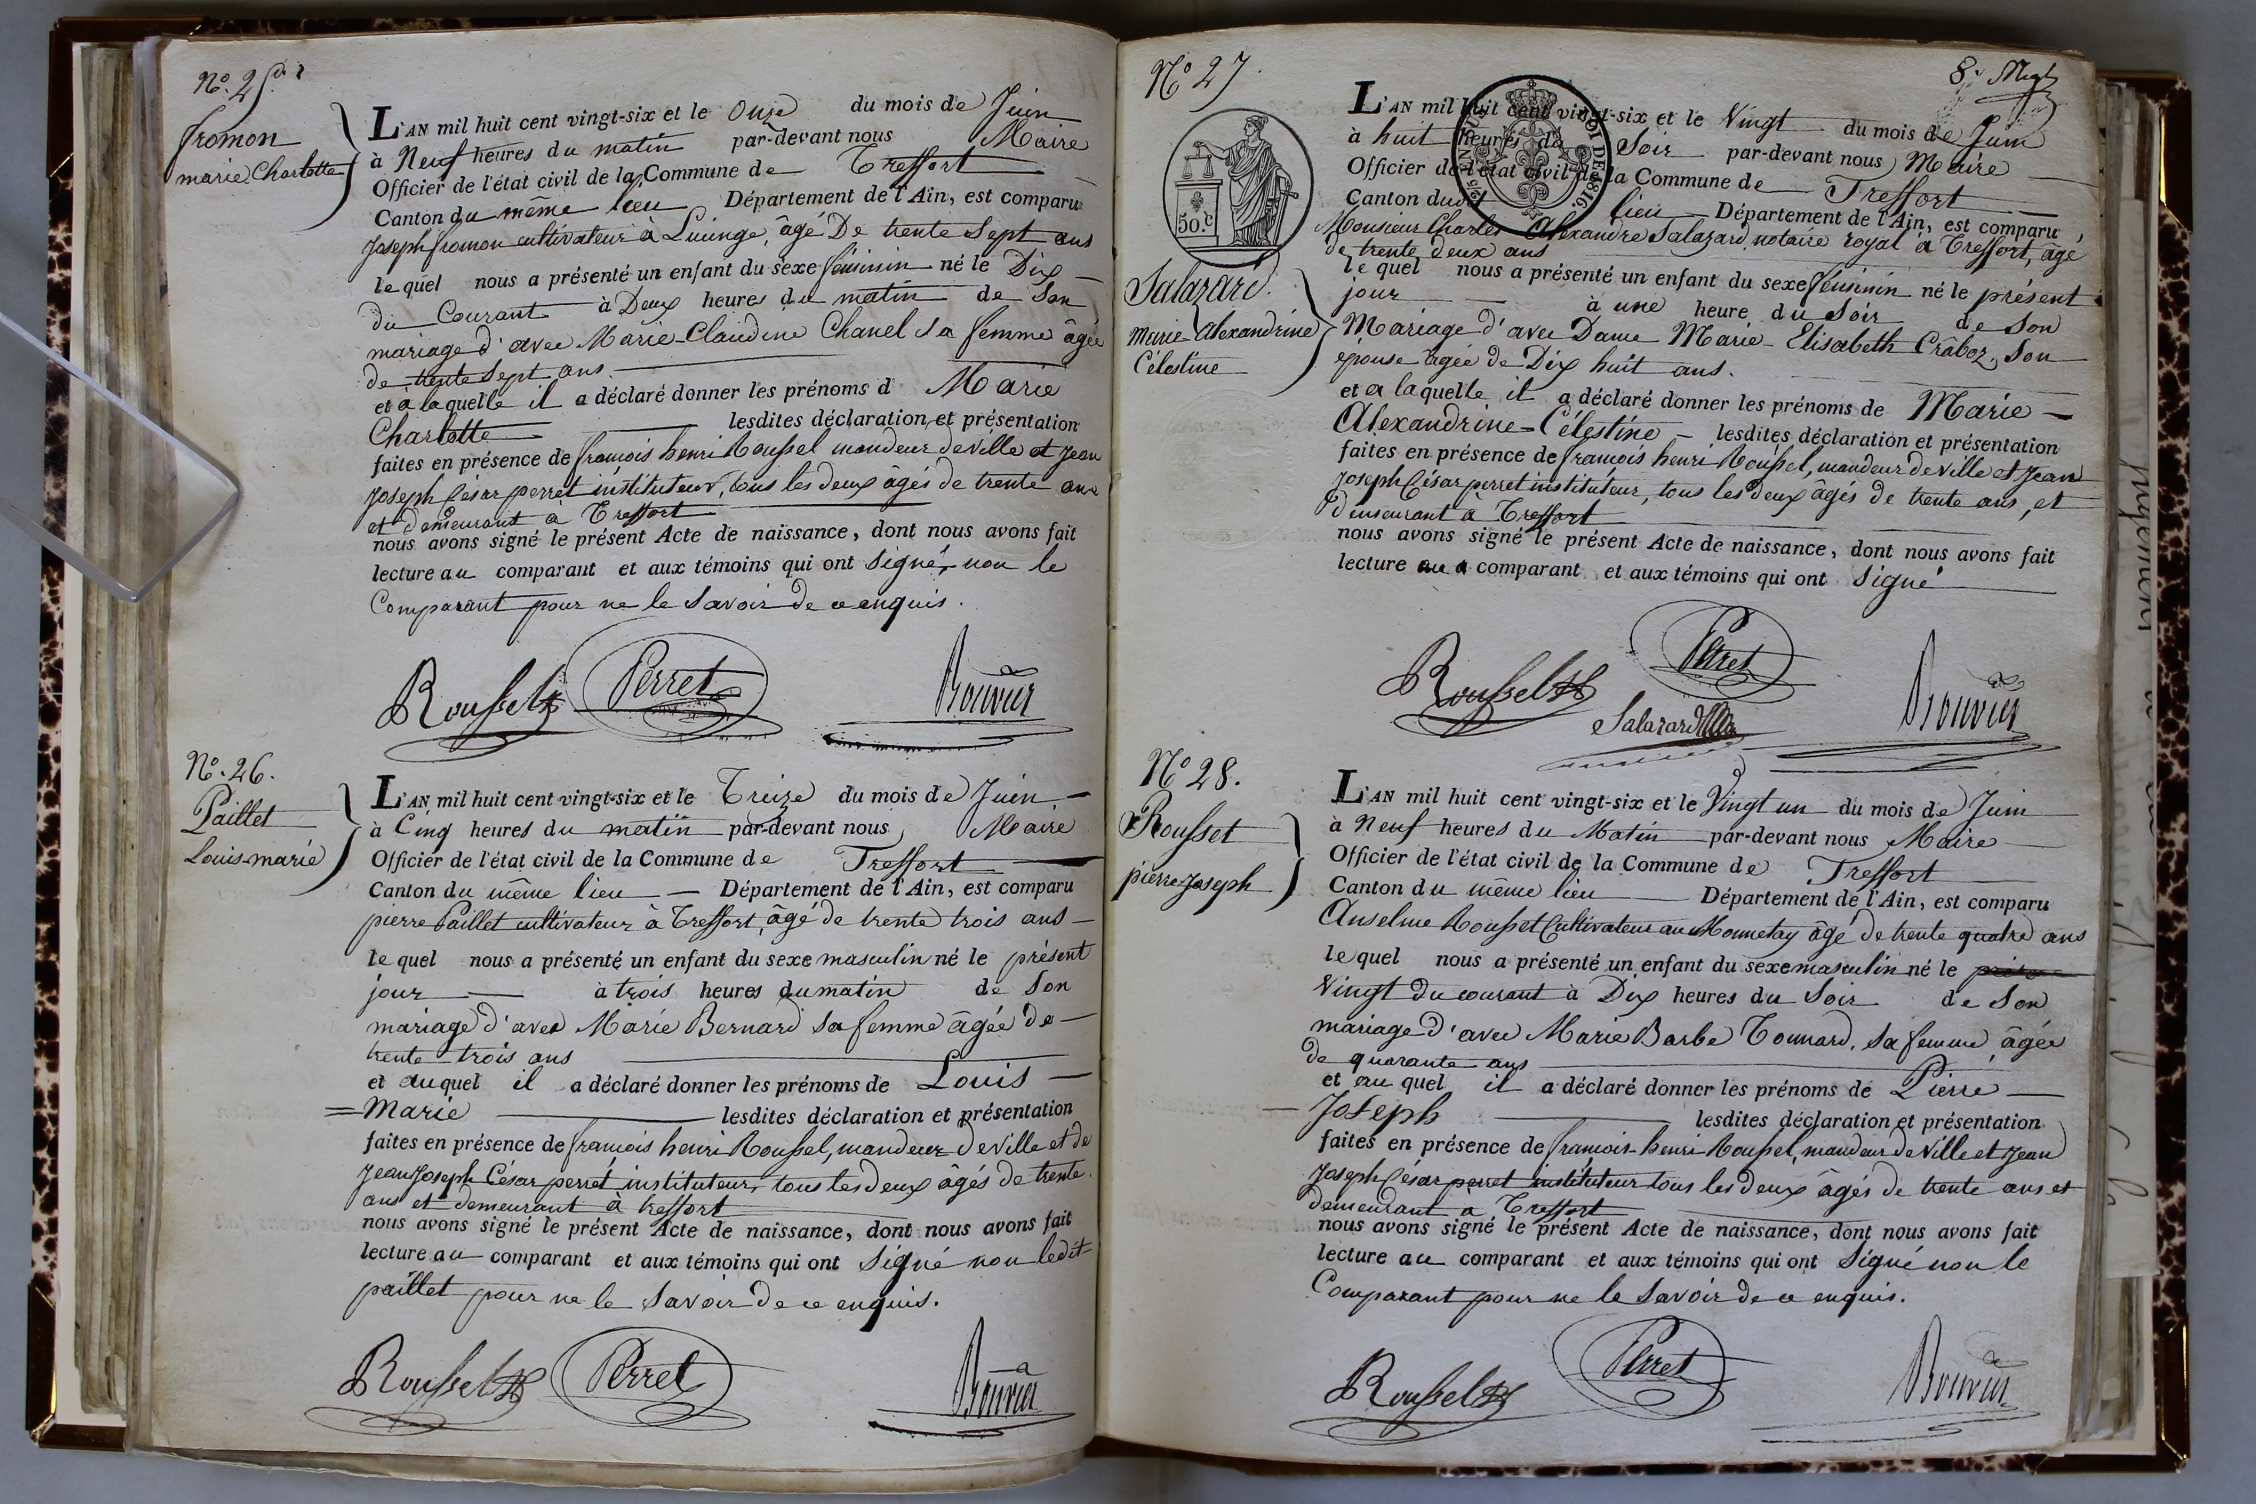 N.º 25.
fromon
marie Charlotte
L'AN mil huit cent vingt-six et le Onze du mois de Juin
à Neuf heures du matin par-devant nous Maire
Officier de l'état civil de la Commune de Treffort
Canton du même lieu Département de l'Ain, est comparu
Joseph fromon cultivateur à Lucinge, âgé De trente Sept ans
le quel nous a présenté un enfant du sexe féminin né le Dix
du Courant à Deux heures du matin de Son
mariage d'avec Marie-Claudine Chanel sa femme âgée
de trente Sept ans.
et à laquelle il a déclaré donner les prénoms d Marie
Charlotte lesdites déclaration et présentation
faites en présence de françois henri Roussel mandeur de ville et Jean
Joseph César perret instituteur, tous les deux âgés de trente ans
et demeurant à Treffort
nous avons signé le présent Acte de naissance, dont nous avons fait
lecture au comparant et aux témoins qui ont Signé, non le
Comparant pour ne le Savoir de ce enquis.
Roussel Perret Bouvier
N.º 26.
Paillet
Louis-marie
L'AN mil huit cent vingt-six et le Treize du mois de Juin
à Cinq heures du matin par-devant nous Maire
Officier de l'état civil de la Commune de Treffort
Canton du même lieu Département de l'Ain, est comparu
pierre Paillet cultivateur à Treffort, âgé de trente trois ans
le quel nous a présenté un enfant du sexe masculin né le présent
jour à trois heures du matin de Son
mariage d'avec Marie Bernard sa femme âgée de
trente trois ans
et auquel il a déclaré donner les prénoms de Louis
= Marie lesdites déclaration et présentation
faites en présence de françois henri Roussel, mandeur de ville et de
Jean Joseph César perret instituteur, tous les deux âgés de trente
ans et demeurant à treffort
nous avons signé le présent Acte de naissance, dont nous avons fait
lecture au comparant et aux témoins qui ont Signé non ledit
paillet pour ne le Savoir de ce enquis.
Roussel Perret Bouvier
N.º 27.
50.C
Salazard
Marie Alexandrine
Célestine
L'AN mil huit cent vingt-six et le Vingt du mois de Juin
à huit heures du Soir par-devant nous Maire
Officier de l'état civil de la Commune de Treffort
Canton dudit lieu Département de l'Ain, est comparu
Monsieur Charles Alexandre Salazard, notaire royal à Treffort, âgé
de trente deux ans
le quel nous a présenté un enfant du sexe féminin né le présent
jour à une heure du Soir de Son
Mariage d'avec Dame Marie-Elisabeth Crâboz, Son
épouse âgée de Dix huit ans.
et a laquelle il a déclaré donner les prénoms de Marie
Alexandrine-Célestine lesdites déclaration et présentation
faites en présence de françois henri Roussel, mandeur de ville et Jean
Joseph César perret instituteur, tous les deux âgés de trente ans, et
Demeurant à Treffort
nous avons signé le présent Acte de naissance, dont nous avons fait
lecture au comparant et aux témoins qui ont Signé
Roussel Perret Salazard Bouvier
N.º 28.
Rousset
pierre Joseph
L'AN mil huit cent vingt-six et le Vingt un du mois de Juin
à Neuf heures du Matin par-devant nous Maire
Officier de l'état civil de la Commune de Treffort
Canton du même lieu Département de l'Ain, est comparu
Anselme Rousset Cultivateur au Monnetay âgé de trente quatre ans
le quel nous a présenté un enfant du sexe masculin né le
Vingt du courant à Dix heures du Soir de Son
mariage d'avec Marie Barbe Tonnard, sa femme, âgée
de quarante ans
et au quel il a déclaré donner les prénoms de Pierre
Joseph lesdites déclaration et présentation
faites en présence de françois henri Roussel, mandeur de Ville et Jean
Joseph César perret instituteur tous les deux âgés de trente ans et
demeurant à Treffort
nous avons signé le présent Acte de naissance, dont nous avons fait
lecture au comparant et aux témoins qui ont Signé non le
Comparant pour ne le Savoir de ce enquis.
Roussel Perret Bouvier